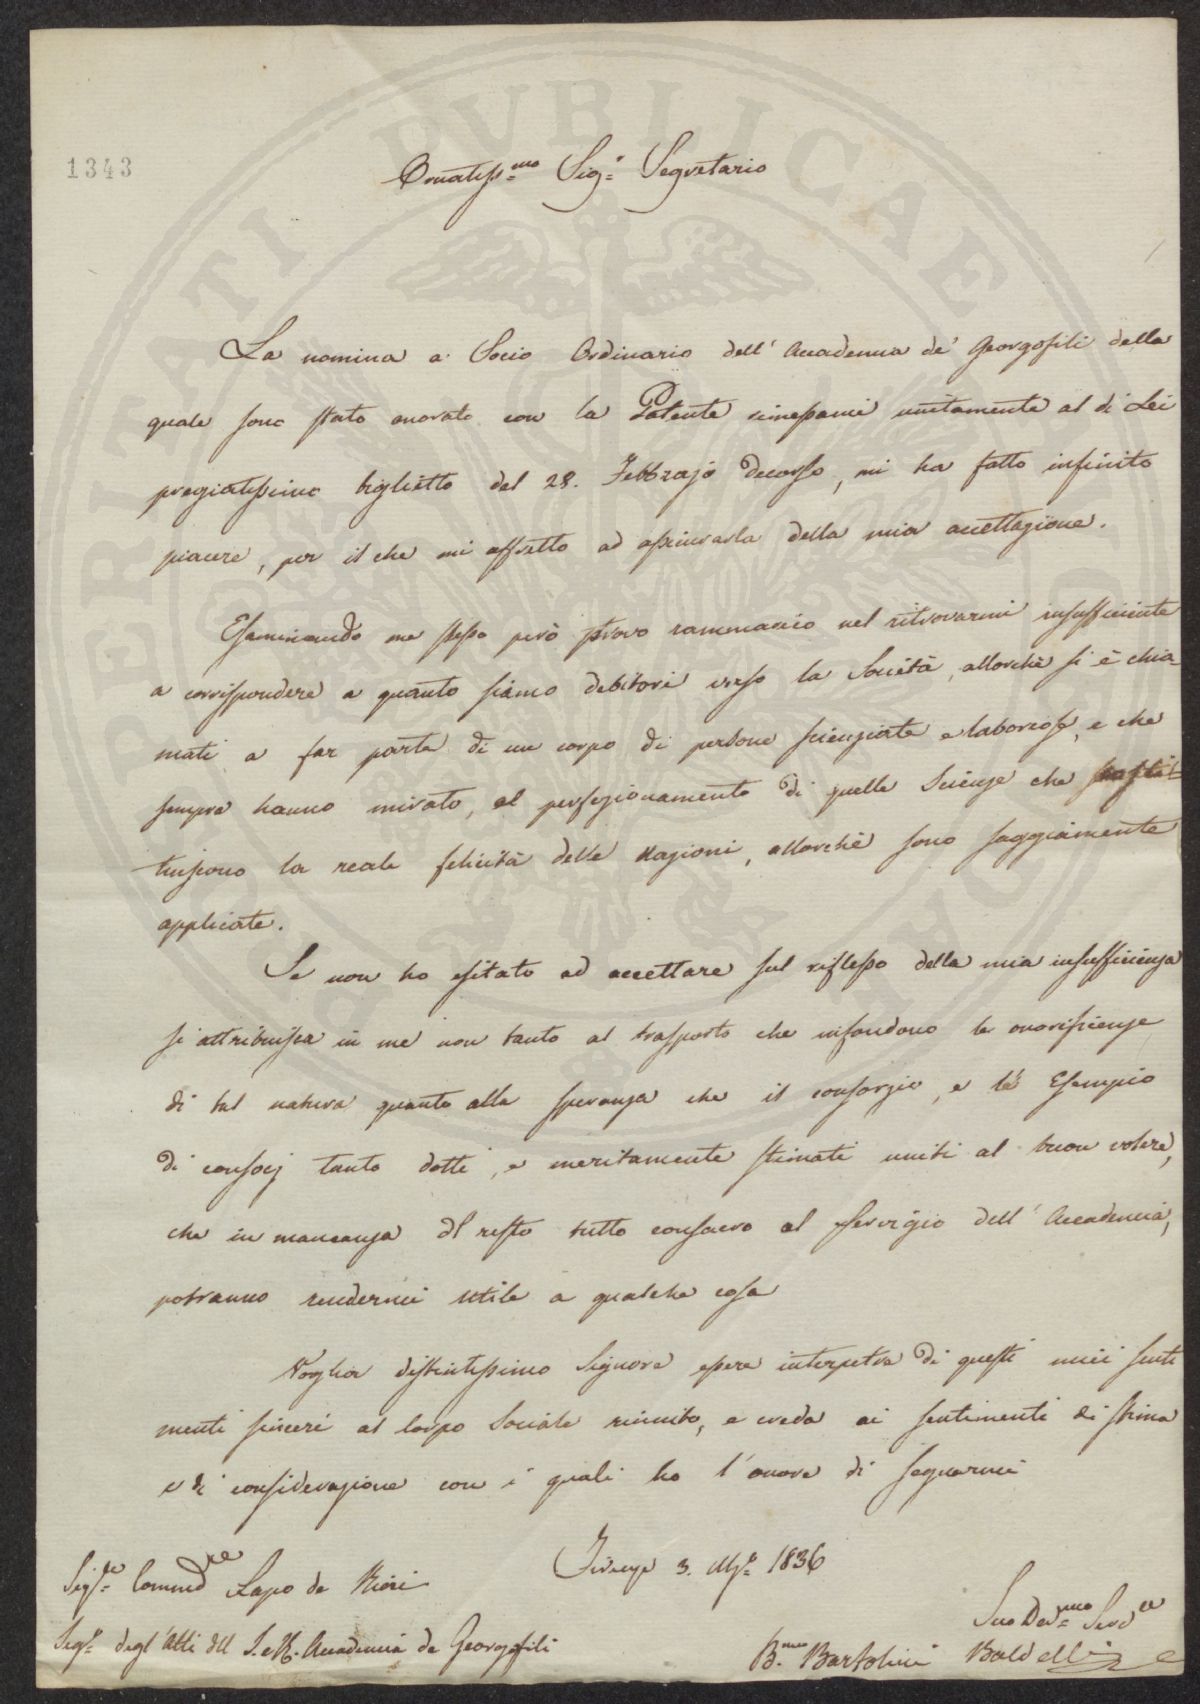 1343
Ornatiss.mo Sig.r Segretario
La nomina a Socio Ordinario dell' Accademia de' Georgofili della
quale sono stato onorato con la Patente rimessami unitamente al di Lei
pregiatissimo biglietto del 28. Febbrajo decorso, mi ha fatto infinito
piacere, per il che mi affretto ad assicurarla della mia accettazione.
Esaminando me stesso però provo rammarico nel ritrovarmi insufficiente
a corrispondere a quanto siamo debitori verso la Società, allorchè si è chia-
mati a far parte di un corpo di persone scienziate e laboriose, e che
sempre hanno mirato, al perfezionamento di quelle Scienze che
tuiscono la reale felicità delle Nazioni, allorchè sono saggiamente
applicate.
Se non ho esitato ad accettare sul riflesso della mia insufficienza
si attribuisca in me non tanto al trasporto che infondono le onorificenze
di tal natura quanto alla speranza che il consorzio, e lo Esempio
di consocj tanto dotti, e meritamente stimati uniti al buon volere,
che in mancanza del resto tutto consacro al servigio dell' Accademia,
potranno rendermi utile a qualche cosa
Voglia distintissimo Signore essere interpetre di questi miei senti
menti sinceri al Corpo Sociale riunito, e creda ai sentimenti di stima
e di considerazione con i quali ho l'onore di segnarmi
Firenze 3. Mzo 1836
Sig.re Commd.re Lapo de Ricci
Seg.o degl'Atti dell I. e R. Accademia de Georgofili
Suo Dev.mo Serv.re
B.meo Bartolini Baldelli
PVBLICAE